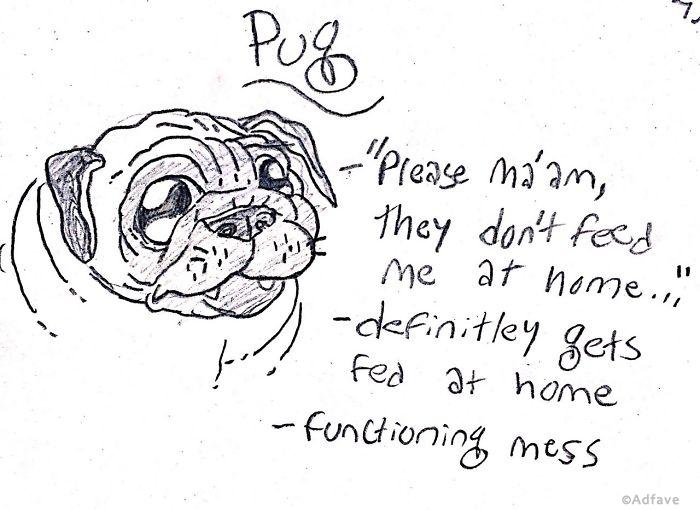 Pug
-"Please ma'am,
they don't feed
me at home..."
-definitley gets
fed at home
-functioning mess
©Adfave